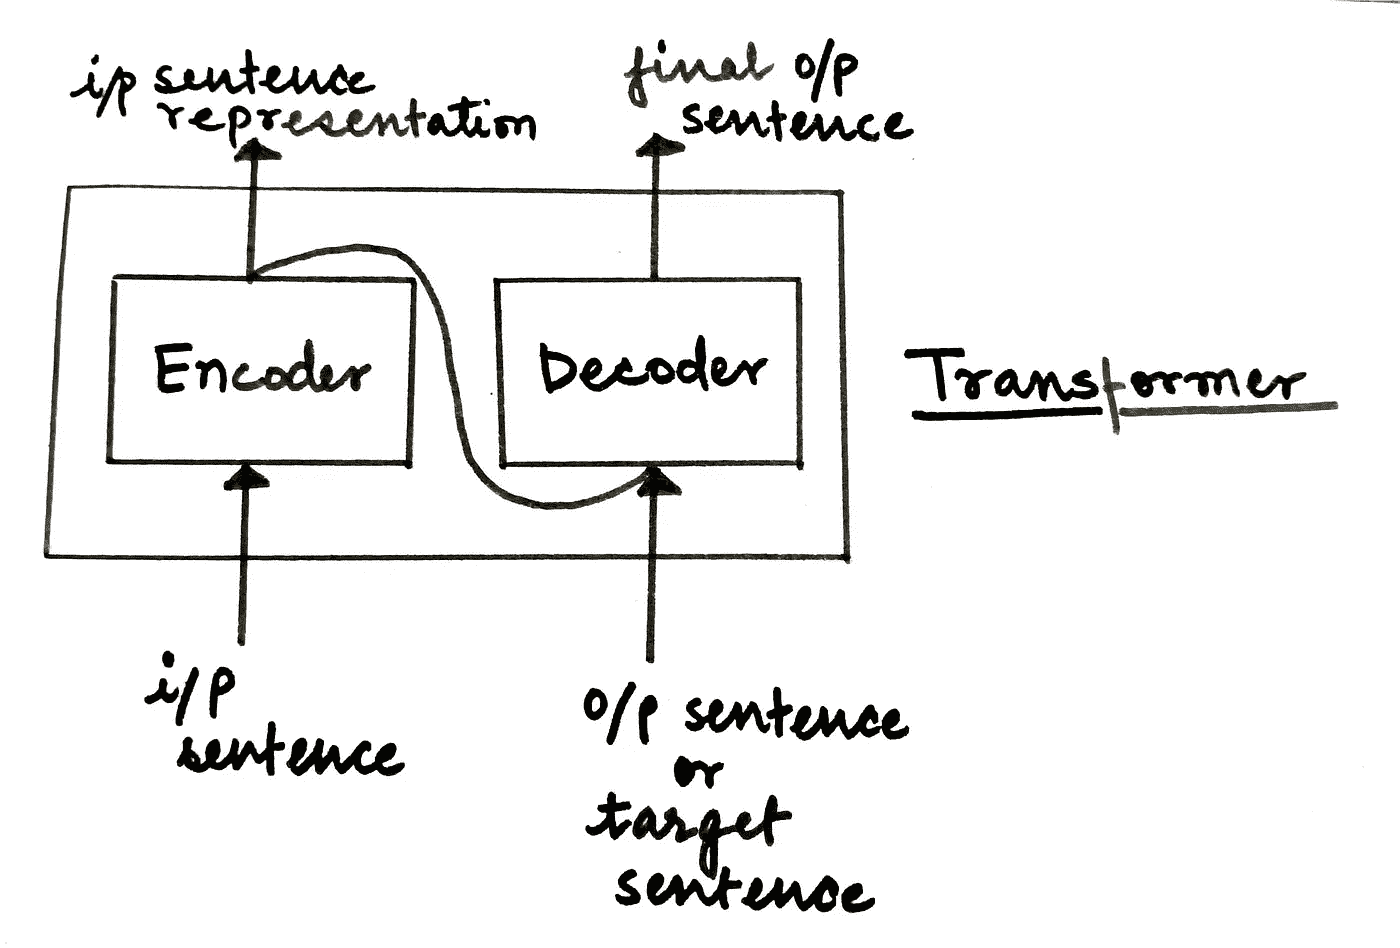 i/p sentence
representation
final o/p
sentence
Encoder
Decoder
Transformer
i/p
sentence
o/p sentence
or
target
sentence